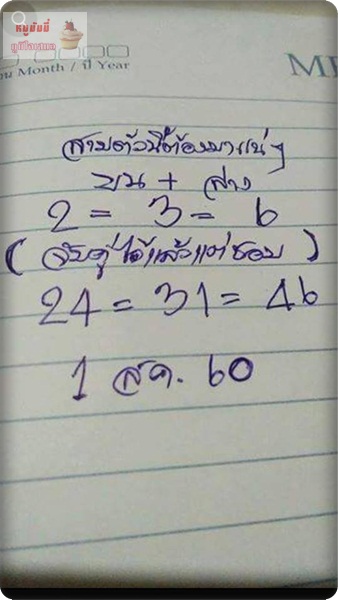 หมูมันนี่
อน Month / ปี Year
ME
สามตัวนี้ต้องมาแน่ๆ
บน + ล่าง
2 = 3 = 6
( จับคู่ได้แล้วแต่ชอบ )
24 = 31 = 46
1 สค. 60